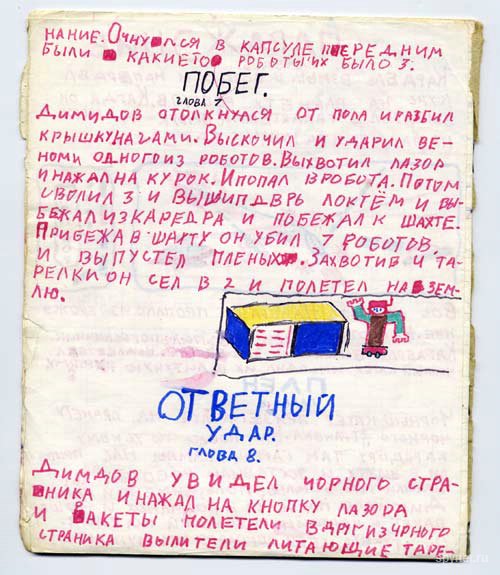 НАНИЕ. ОЧНУЛСЯ В КАПСУЛЕ ПЕРЕДНИМ
БЫЛИ КАКИЕТО РОБОТЫ ИХ БЫЛО 3.
ПОБЕГ.
ГЛОВА 7
ДИМИДОВ ОТОЛКНУЛСЯ ОТ ПОЛА И РАЗБИЛ
КРЫШКУ НАГАМИ. ВЫСКОЧИЛ И УДАРИЛ ВЕ-
НОМИ ОДНОГО ИЗ РОБОТОВ. ВЫХВОТИЛ ЛАЗОР
И НАЖАЛ НА КУРОК. И ПОПАЛ В РОБОТА. ПОТОМ
СВОЛИЛ 3 И ВЫШИП ДВРЬ ЛОКТЁМ И ВЫ-
БЕЖАЛ ИЗ КАРЕДРА И ПОБЕЖАЛ К ШАХТЕ.
ПРИБЕЖАВ ШАХТУ ОН УБИЛ 7 РОБОТОВ.
И ВЫПУСТЕЛ ПЛЕНЫХ. ЗАХВОТИВ 4 ТА-
РЕЛКИ ОН СЕЛ В 2 И ПОЛЕТЕЛ НА ЗЕМ-
ЛЮ.
ОТВЕТНЫЙ
УДАР.
ГЛОВА 8.
ДИМДОВ УВИДЕЛ ЧОРНОГО СТРА-
НИКА И НАЖАЛ НА КНОПКУ ЛАЗОРА
И РАКЕТЫ ПОЛЕТЕЛИ ВДРГ ИЗ ЧРНОГО
СТРАНИКА ВЫЛИТЕЛИ ЛИТАЮЩИЕ ТАРЕ-
spynet.ru